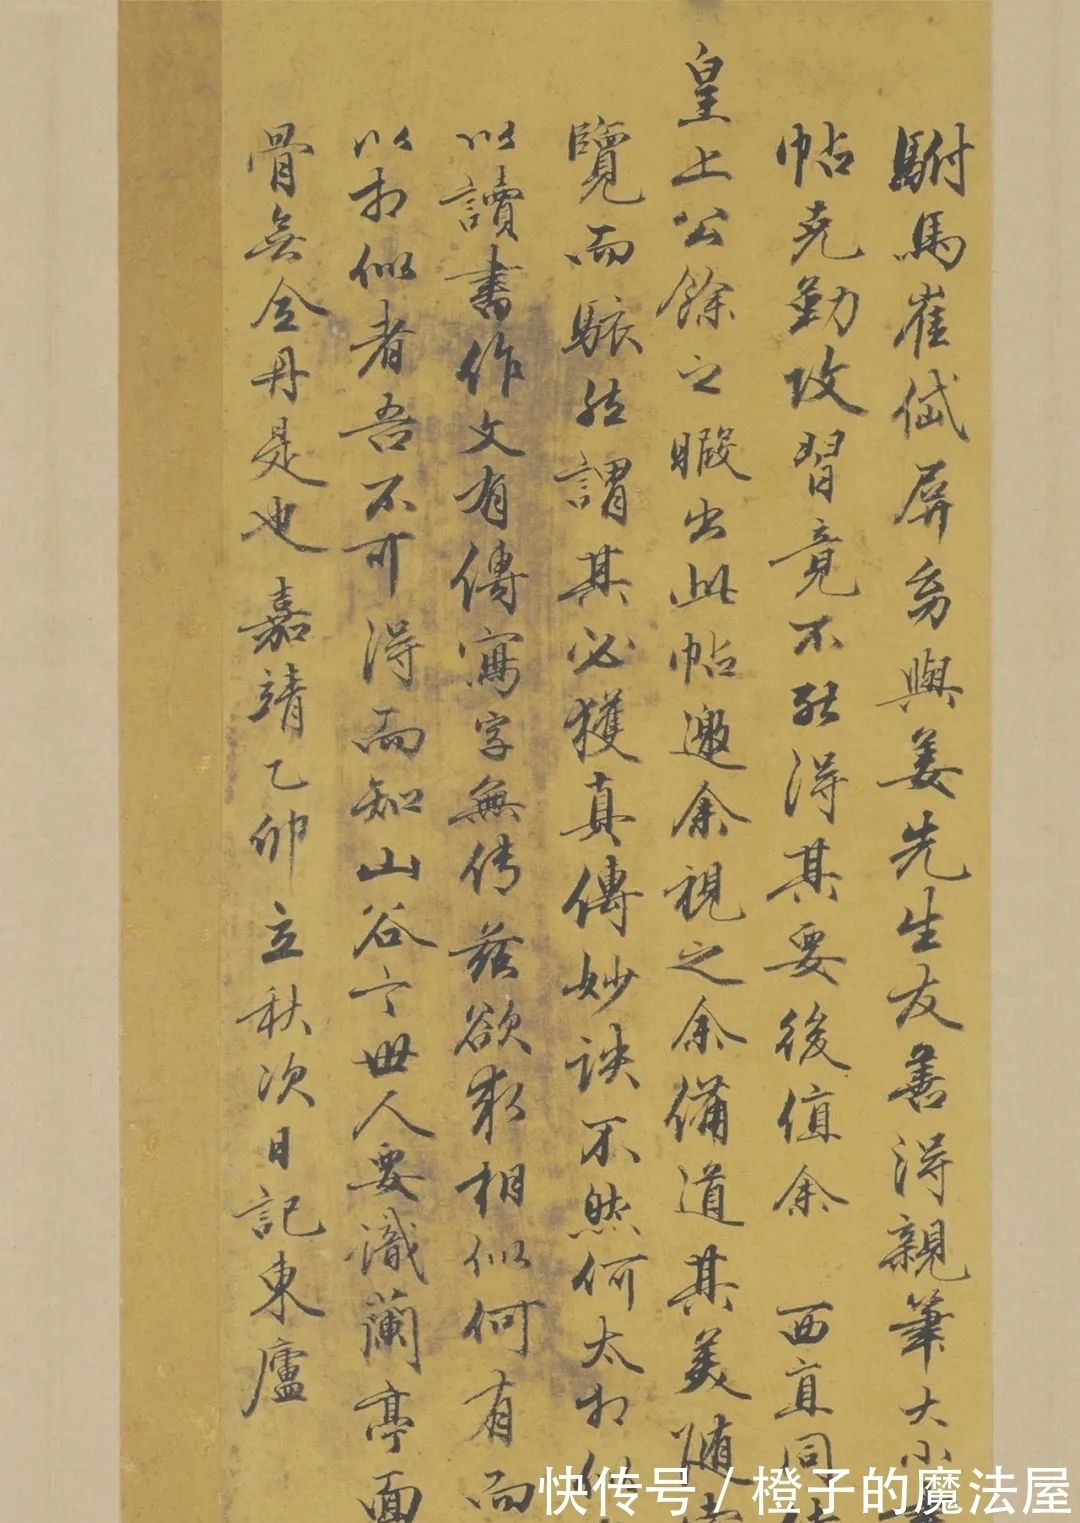 駙馬崔岱屏翁與姜先生友善得親筆大小
帖克勤攻習竟不能得其要後值余 西直同
皇上公餘之暇出此帖邀余視之余備道其美隨
覽而駭然謂其必獲真傳妙訣不然何太相似
以讀書作文有傳寫字無傳茲欲求相似何有而
以相似者吾不可得而知山谷云世人要識蘭亭面
骨無金丹是也 嘉靖乙卯立秋次日記東廬
快传号 / 橙子的魔法屋